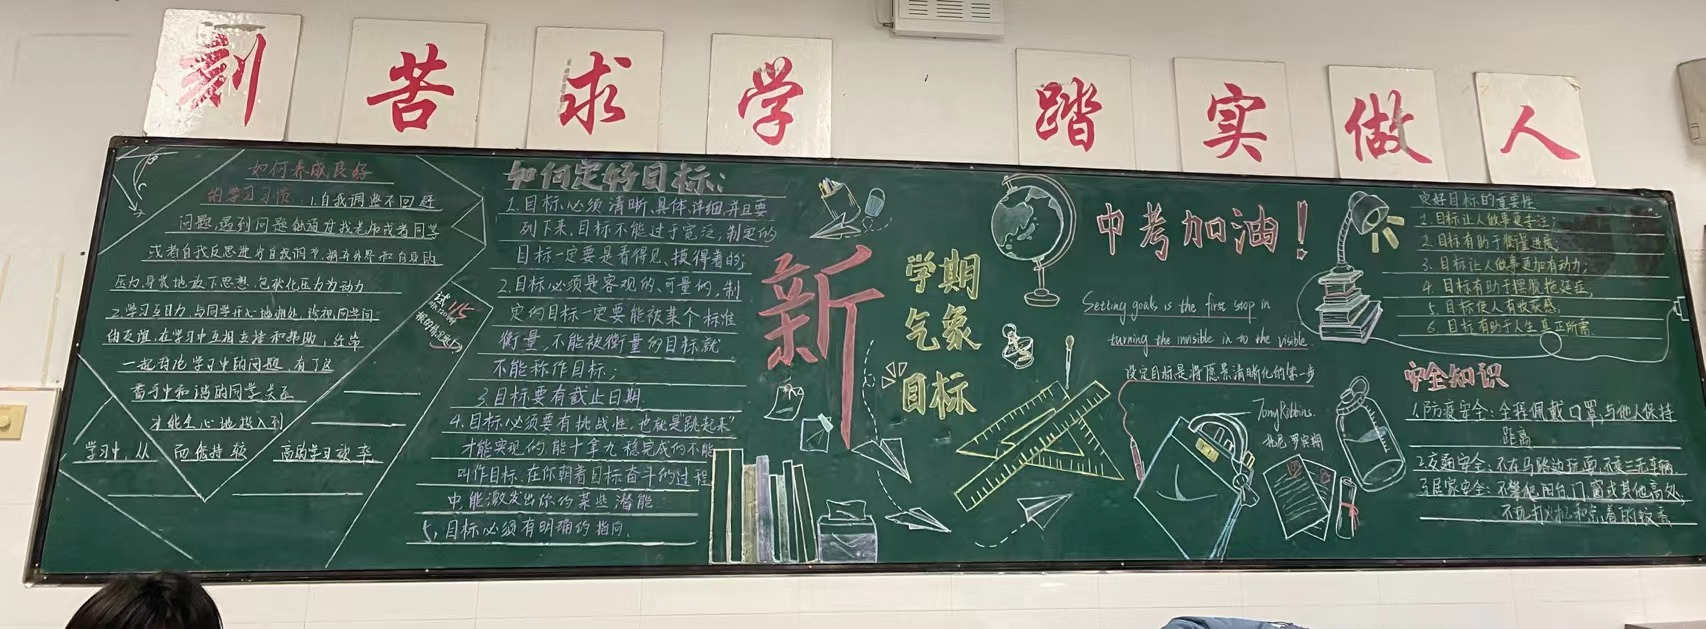 刻苦求学 踏实做人
如何养成良好
的学习习惯 1.自我调整不回避
问题,遇到问题能通过找老师或者同学
或者自我反思进行自我调节,拥有外界和自身的
压力,尽快地放下思想包袱化压力为动力
2.学习互助力,与同学开心地相处,珍视同学间
的友谊,在学习中互相支持和帮助,经常
一起讨论学习中的问题,有了这
着手中和谐的同学关系
才能全心地投入到
学习中,从 而保持较 高的学习效率
115
如何定好目标:
1.目标必须清晰、具体、详细,并且要
列下来,目标不能过于宽泛,制定的
目标一定要是看得见、摸得着的;
2.目标必须是客观的、可量的,制
定的目标一定要能被某个标准
衡量,不能被衡量的目标就
不能称作目标;
3.目标要有截止日期.
4.目标必须要有挑战性.也就是"跳起来"
才能实现的.能十拿九稳完成的不能
叫作目标.在你朝着目标奋斗的过程
中能激发出你的某些潜能
5、目标必须有明确的指向.
新
学期
气象
目标
中考加油!
Setting goals is the first step in
turning the invisible in to the visible.
设定目标是将愿景清晰化的第一步
Tony Robbins.
托尼·罗宾斯
定好目标的重要性
1.目标让人做事更专注;
2.目标有助于衡量进展;
3.目标让人做事更加有动力;
4.目标有助于摆脱拖延症;
5.目标使人有收获感;
6.目标有助于人生真正所需
安全知识
1.防疫安全:全程佩戴口罩,与他人保持
距离
2.交通安全:不在马路边玩耍,不乘三无车辆
3.居家安全:不攀爬阳台、门窗或其他高处,